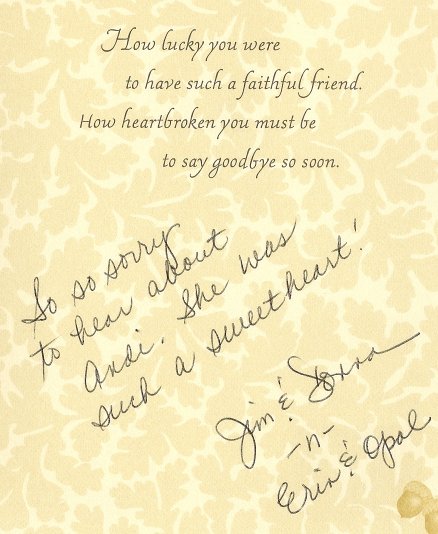 How lucky you were
to have such a faithful friend.
How heartbroken you must be
to say goodbye so soon.
So so sorry
to hear about
Andi. She was
such a sweetheart!
Jim & Donna
-n-
Erin & Opal